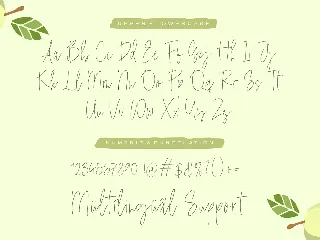 UPPER & LOWERCASE
Aa Bb Cc Dd Ee Ff Gg Hh Ii Jj
Kk Ll Mm Nn Oo Pp Qq Rr Ss Tt
Uu Vv Ww Xx Yy Zz
NUMERIC & PUNCTUATION
1234567890 !@#$&?()+-
Multilingual Support